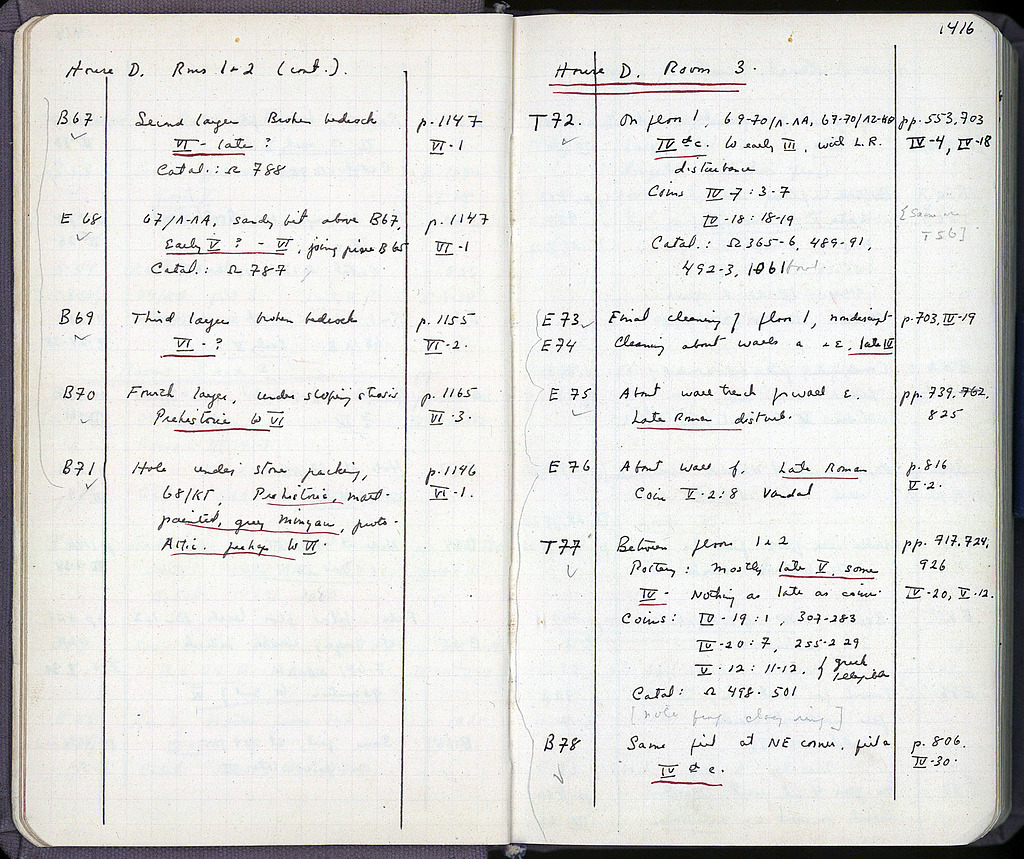 House D. Rms 1+2 (cont.).
B67 Second layer Broken bedrock p. 1147
VI - late ? VI-1
Catal.: Ω 788
E 68 67/Λ-ΛΑ, sandy bit above B67, p. 1147
Early V ? - VI, joining piece B65 VI-1
Catal.: Ω 787
B69 Third layer broken bedrock p. 1155
VI - ? VI-2.
B70 Fourth layer, under sloping stosis p. 1165
Prehistoric to VI VI-3.
B71 Hole under stone packing, p. 1146
68/ΚΓ Prehistoric, matt- VI-1.
painted, grey Minyan, proto-
Attic. perhaps to VI.
1416
House D. Room 3.
T72. On floor 1, 69-70/Λ-ΛΑ, 67-70/ pp. 553, 703
IV c. to early III, with L.R. IV-4, IV-18
disturbance
Coins IV-7: 3-7
IV-18: 18-19 [Same as
Catal.: Ω 365-6, 489-91, T56]
492-3, 1061
E73 Final cleaning of floor 1, nondescript p. 703, IV-19
E74 Cleaning about walls a + E, late IV
E 75 About wall trench for wall E pp. 739, 762,
Late Roman disturb. 825
E 76 About wall f. Late Roman p. 816
Coin V-2: 8 Vandal V-2.
T77 Between floors 1+2 pp. 717, 724,
Pottery. Mostly late V, some 926
IV - Nothing as late as coin. IV-20, V-12.
Coins: IV-19: 1, 307-283
IV-20: 7, 255-229
V-12: 11-12. { Greek
illegible
Catal: Ω 498-501
[note clay ring]
B78 Same fill at NE corner, p. 806.
IV c. IV-30.